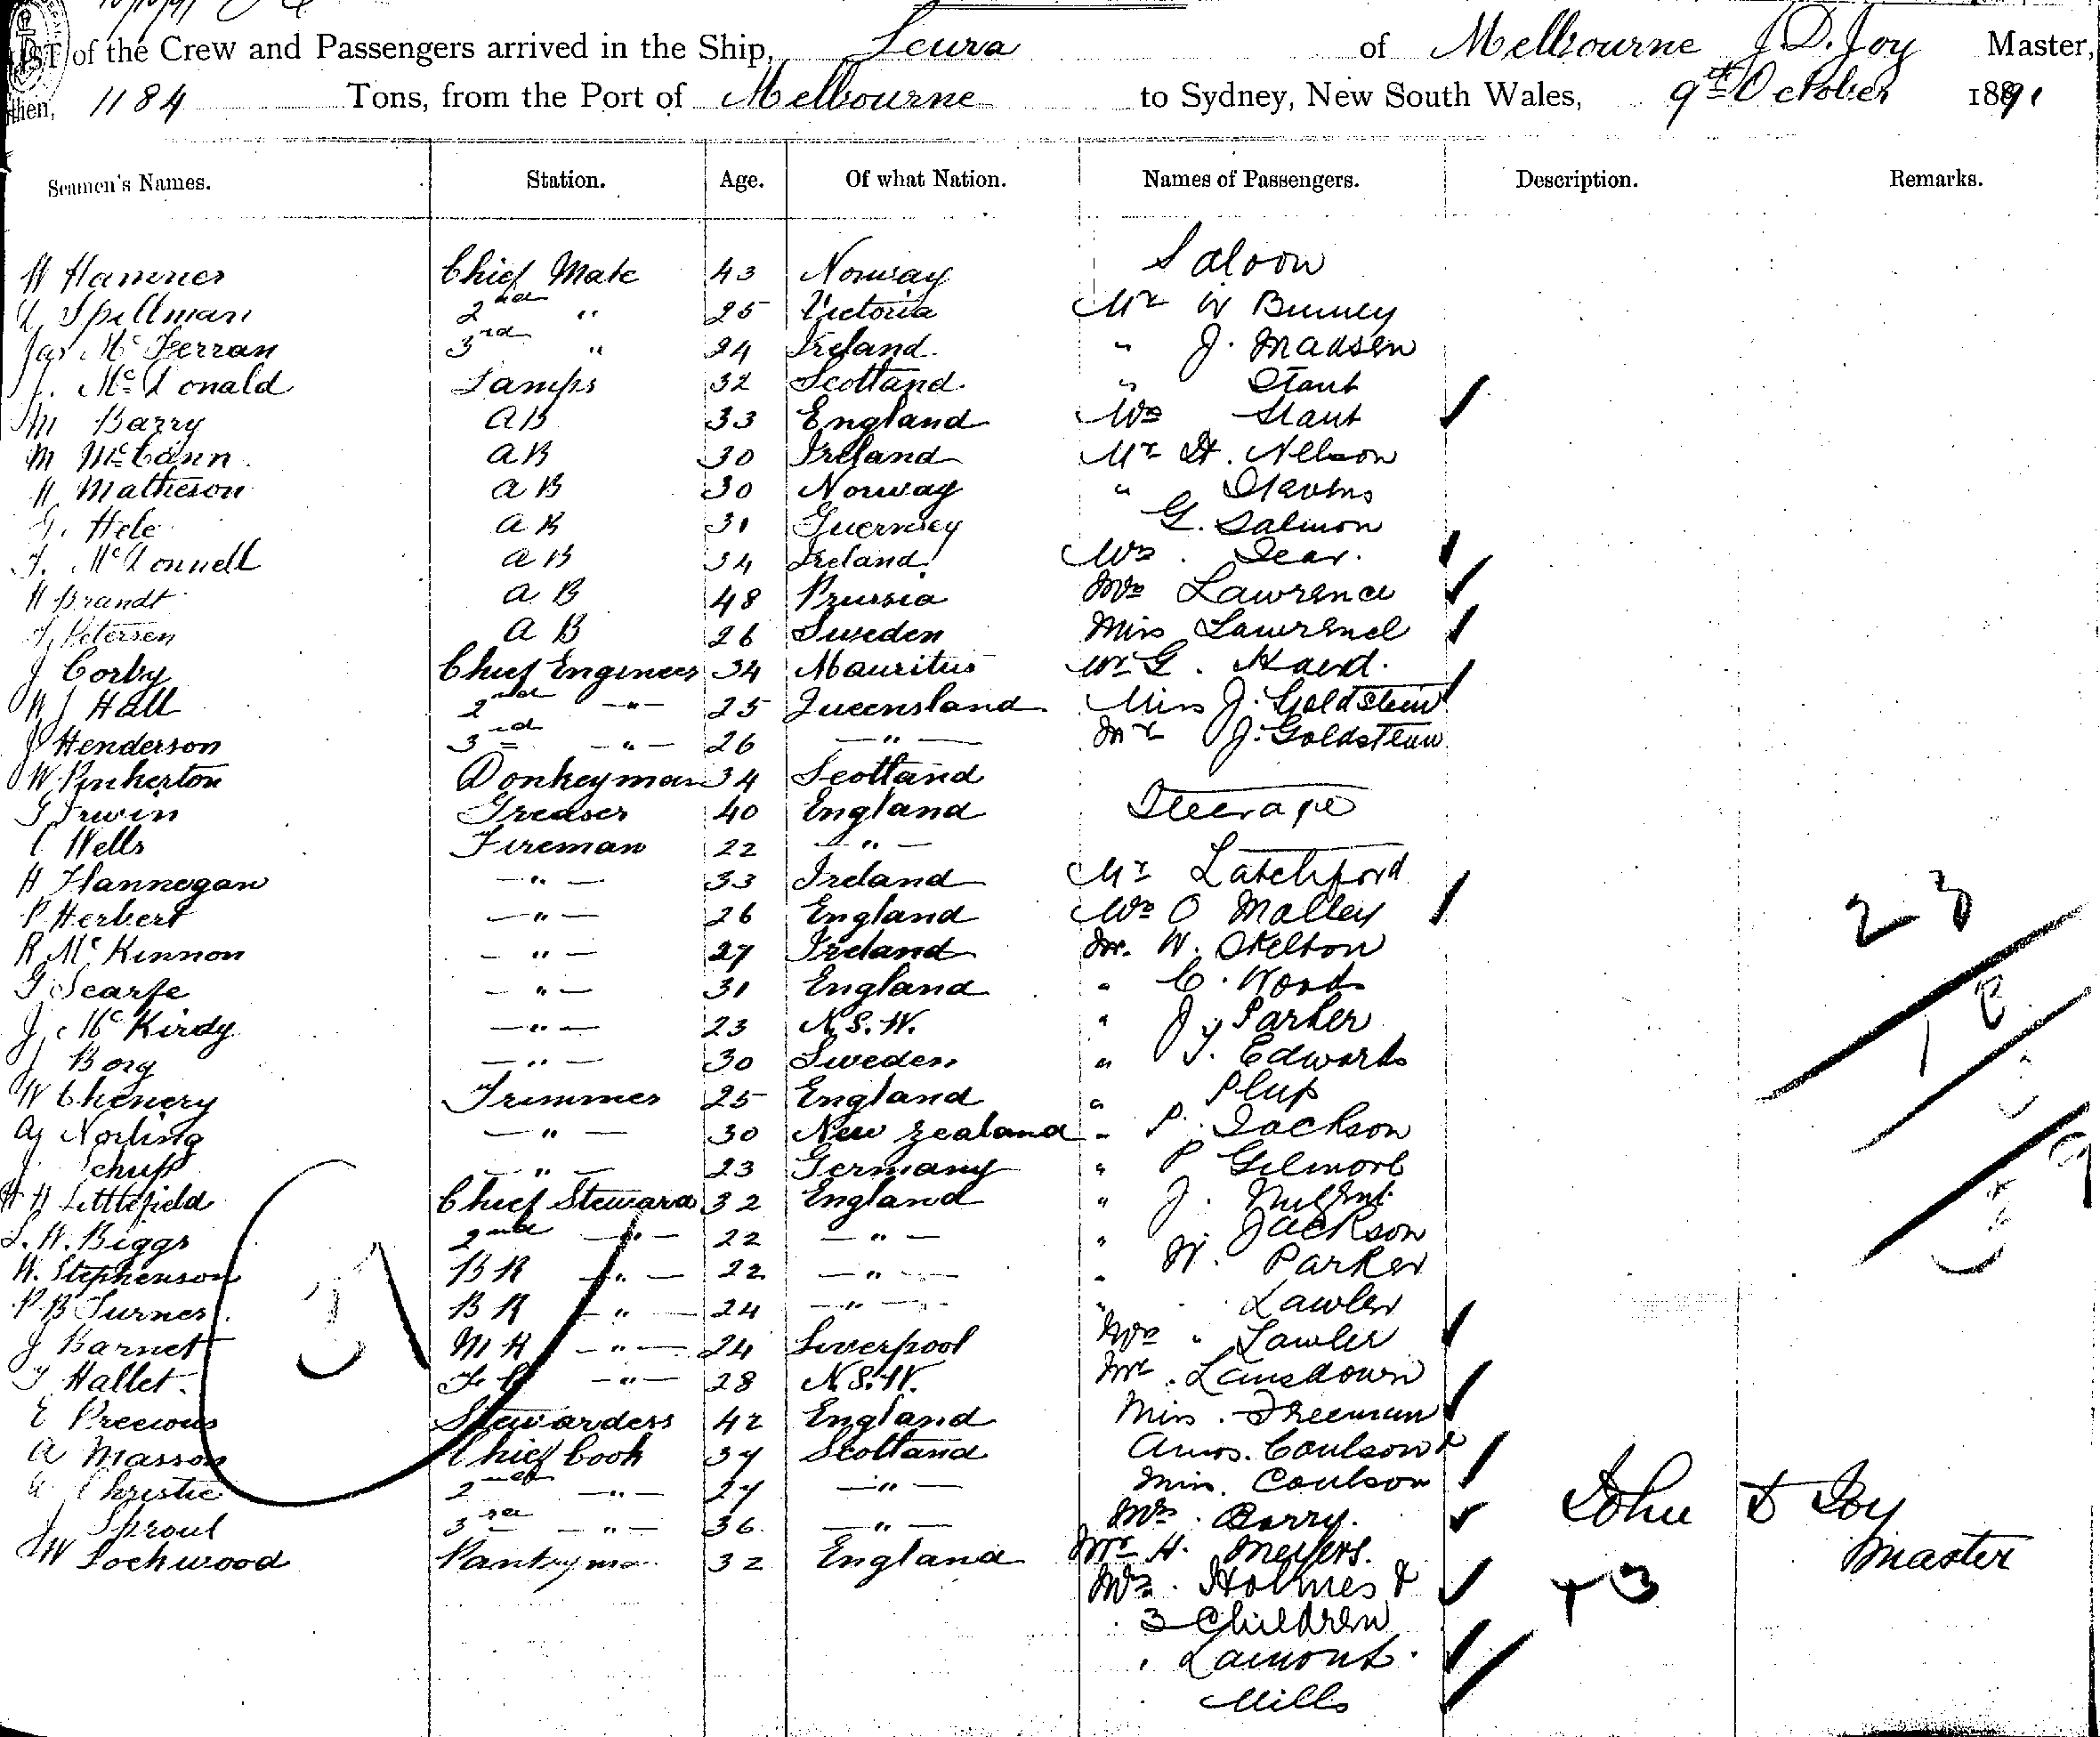 LIST of the Crew and Passengers arrived in the Ship, Leura of Melbourne J. D. Joy Master,
then, 1184 Tons, from the Port of Melbourne to Sydney, New South Wales, 9th October 1891
Seamen's Names. Station. Age. Of what Nation. Names of Passengers. Description. Remarks.
Saloon
H Hammer Chief Mate 43 Norway
Spillman 2nd " 25 Victoria Mr W Binney
Jas McFerran 3rd " 24 Ireland. " J. Madsen
McDonald Lamps 32 Scotland. " Staut
M Barry AB 33 England Mrs Staut
M McCann. AB 30 Ireland Mr H. Nelson
H Matheson AB 30 Norway " Stevens
G. Hele AB 31 Guernsey G. Salmon
McDonnell AB 34 Ireland Mrs. Dear.
H Brandt AB 48 Prussia Mrs Lawrence
Petersen AB 26 Sweden Miss Lawrence
J Corby Chief Engineer 34 Mauritius Mr G.
W J Hall 2nd " 25 Queensland Miss J. Goldstein
J Henderson 3rd " 26 " Mr J. Goldstein
W Pinkerton Donkeyman 34 Scotland
G Irwin Greaser 40 England Steerage
C Wells Fireman 22 "
H Flannegan " 33 Ireland Mr Latchford
P Herbert " 26 England Mrs O Malley
R McKinnon " 27 Ireland Mr. W. Skelton
G Scarfe " 31 England " C. Woods
J. McKirdy " 23 N.S.W. " J y Parker
J Borg " 30 Sweden " J. Edwards
W Chenery Trimmer 25 England " Plup
A Norling " 30 New Zealand " P. Jackson
J Schupp " 23 Germany " P Gilmore
H H Littlefield Chief Steward 32 England " J. Nugent
S. W. Biggs 2nd " 22 " " Jackson
W. Stephenson BR " 22 " " W. Parker
P B Turner. BR " 24 " " Lawler
J Barnet MR " 24 Liverpool Mrs " Lawler
T Hallet. FC " 28 N.S.W. Mr. Lansdown
E Precious Stewardess 42 England Miss. Freeman
A Masson Chief Cook 37 Scotland Amos. Coulson &
Christie 2nd " 27 " Miss. Coulson
J Sproul 3rd " 36. " Mrs. Berry.
W Lockwood Pantryman 32 England Mr H. Meyers.
Mrs. Holmes &
3 Children
" Lamont.
Mills
23
18
John D Joy
Master
+3